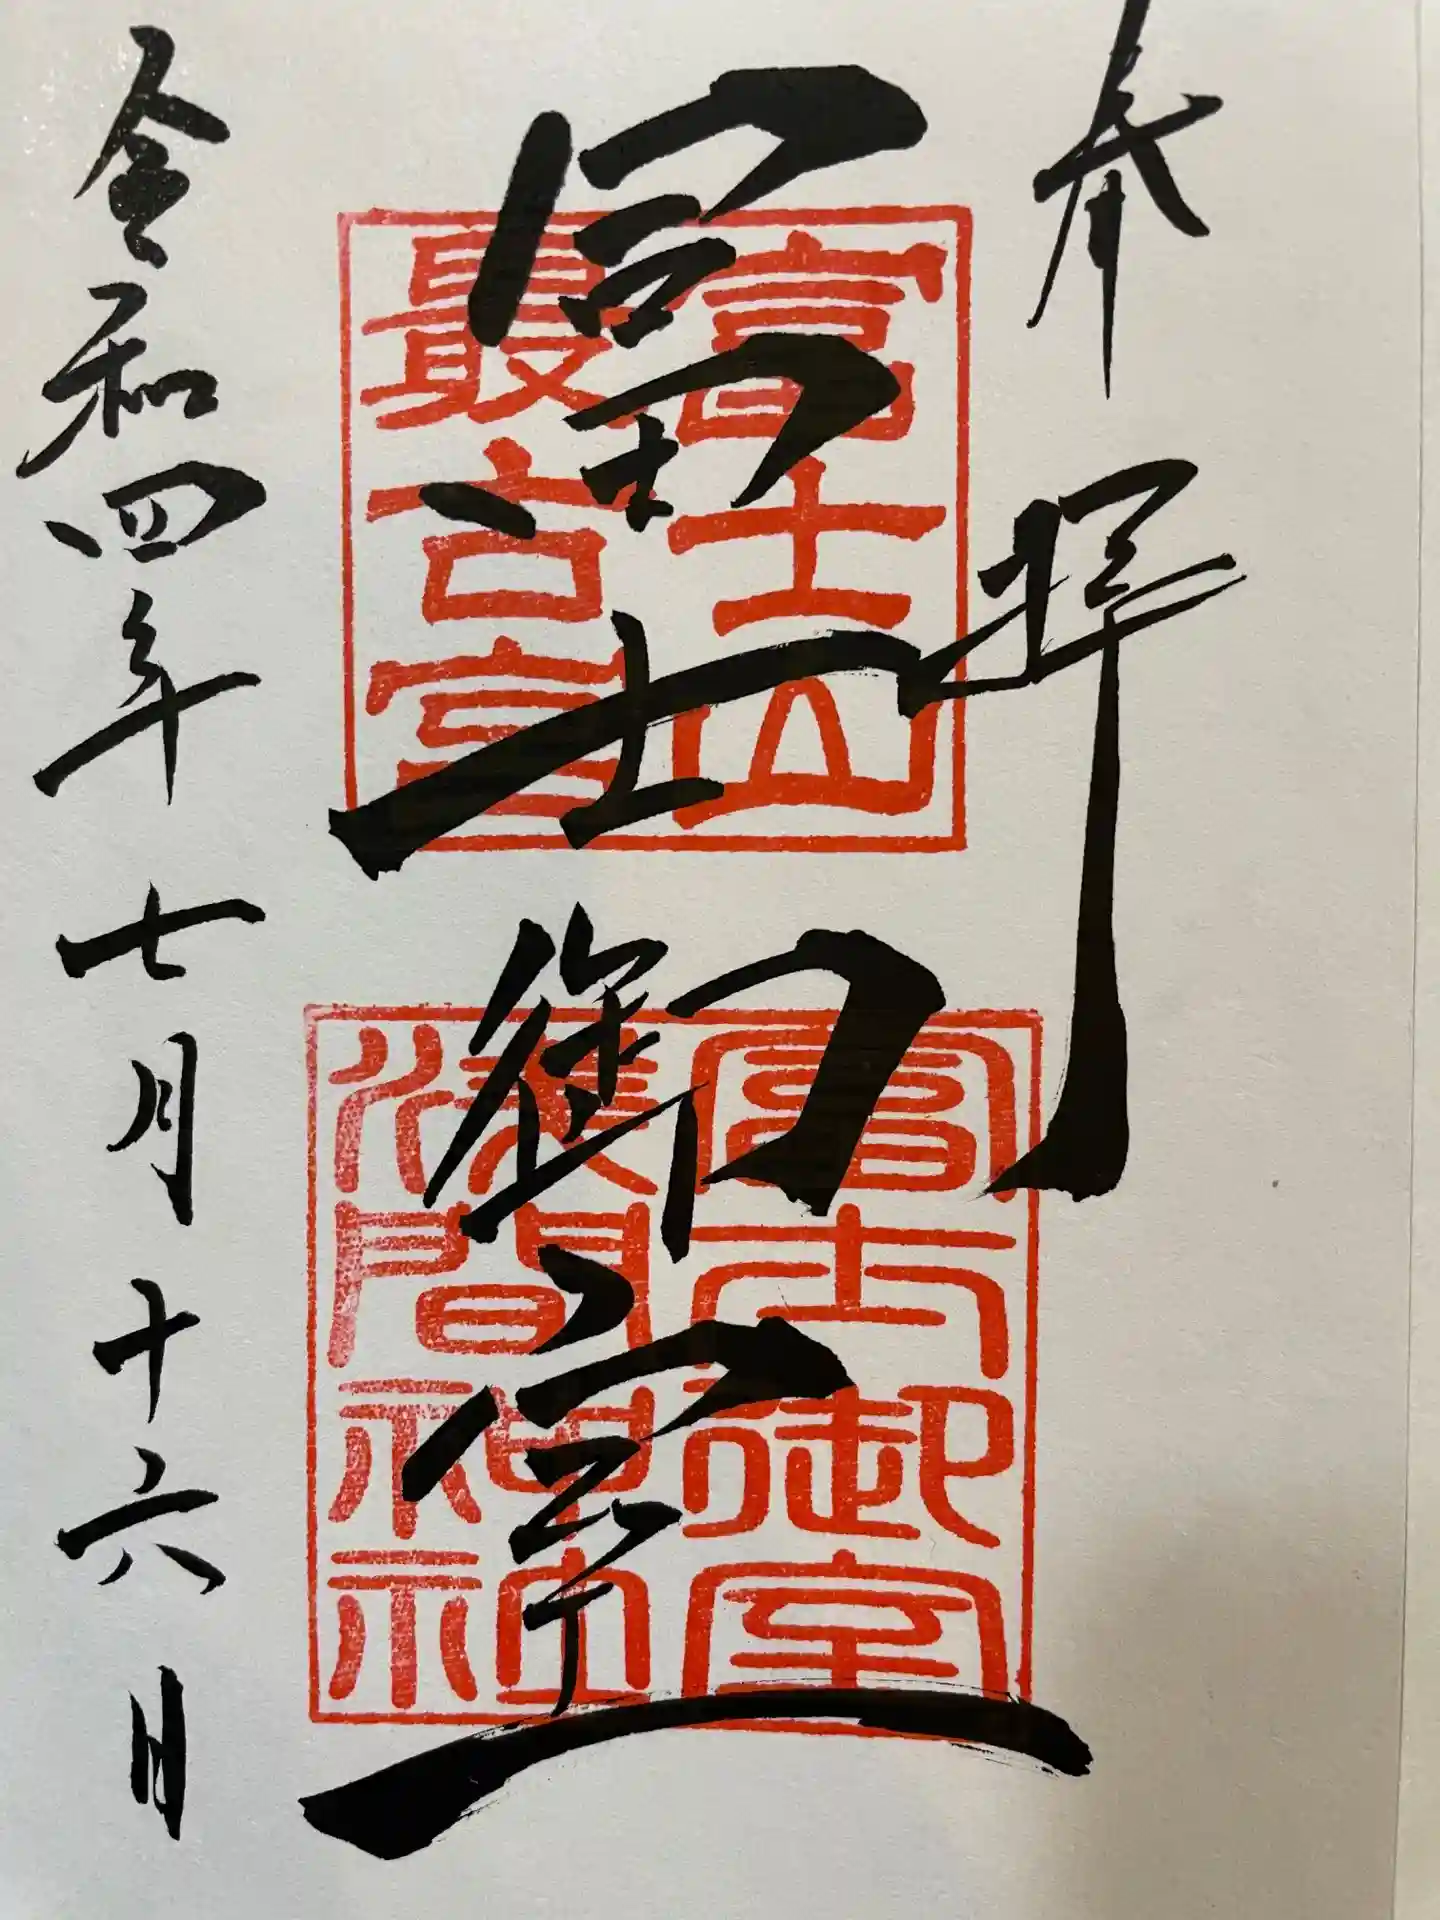 奉拝
冨士御室
富士山
最古宮
冨士御室
淺間神社
令和四年七月十六日